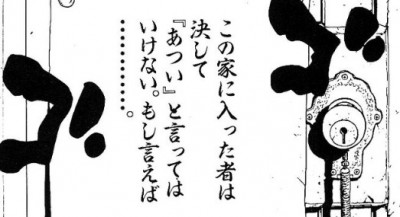 ゴ
この家に入った者は
決して
『あつい』と言っては
いけない。もし言えば
…………。
ゴ